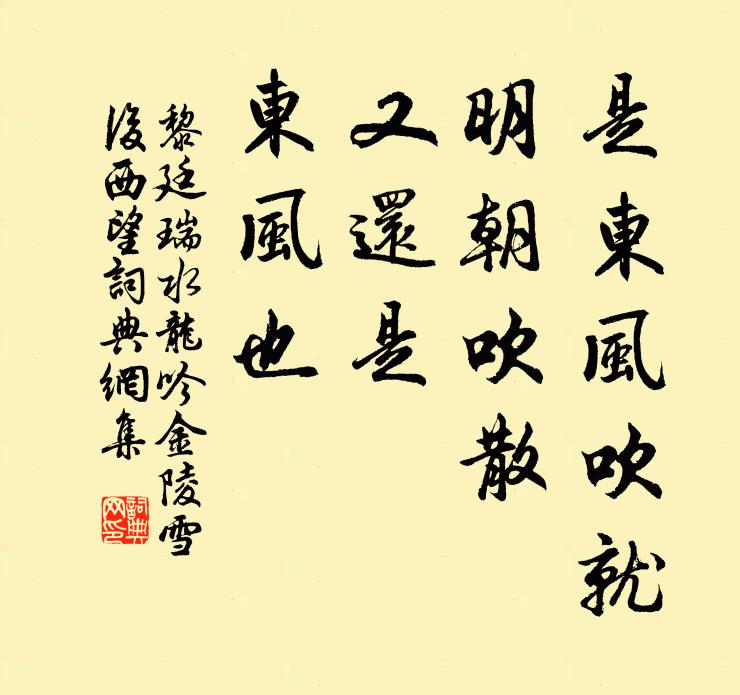 是東風吹就
明朝吹散
又還是
東風也
黎廷瑞水龍吟金陵雪
後西望詞典網集
詞典
网印